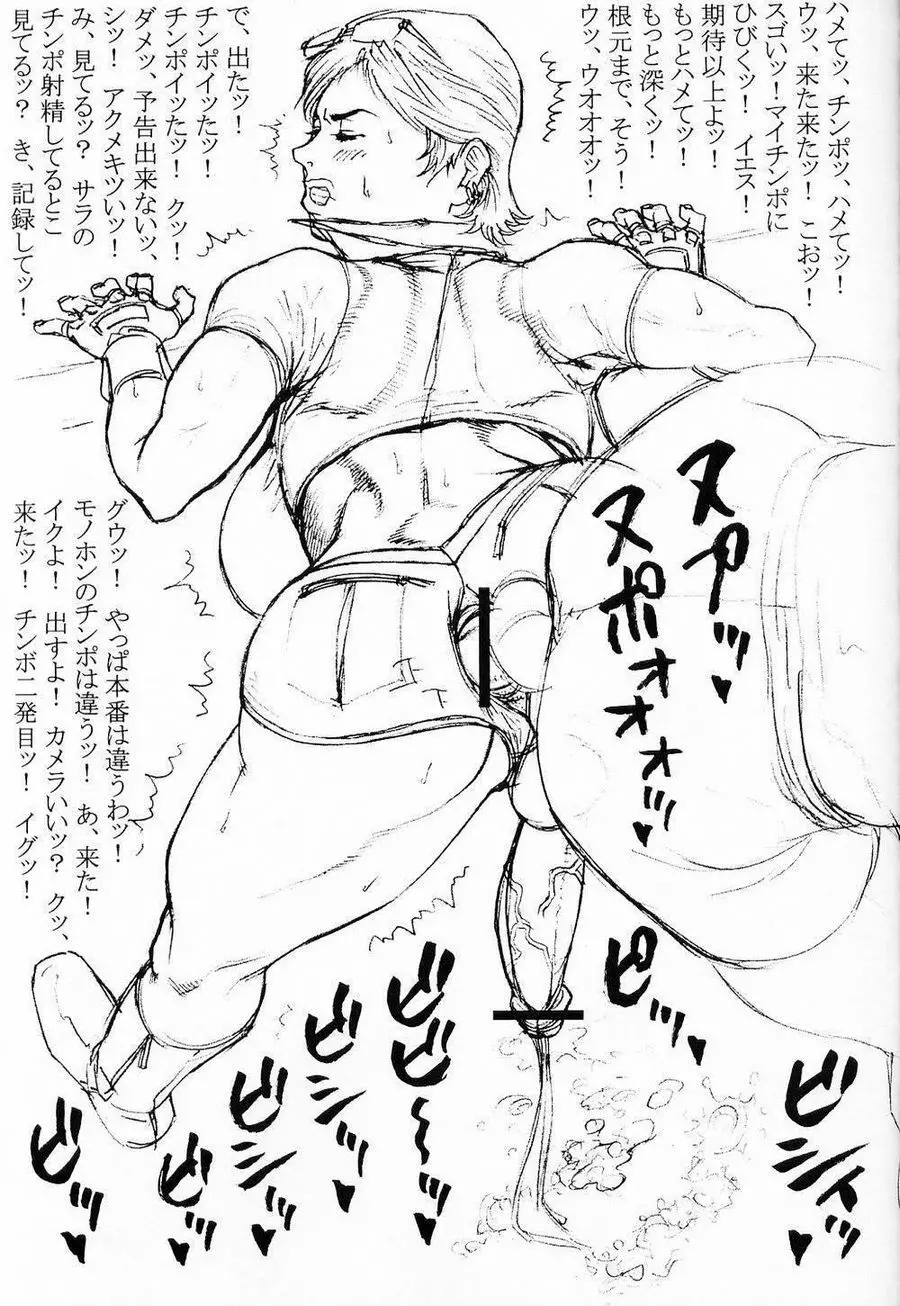 ハメてッ、チンポッ、ハメてッ！
ウッ、来た来たッ！ こおッ！
スゴいッ！マイチンポに
ひびくッ！ イエス！
期待以上よッ！
もっとハメてッ！
もっと深くッ！
根元まで、そう！
ウッ、ウオオオッ！
で、出たッ！
チンポイッたッ！
チンポイッたッ！ クッ！
ダメッ、予告出来ないッ、
シッ！ アクメキツいッ！
み、見てるッ？ サラの
チンポ射精してるとこ
見てるッ？ き、記録してッ！
ヌアッ♥
ヌポォォォッ♥
グウッ！ やっぱ本番は違うわッ！
モノホンのチンポは違うッ！ あ、来た！
イクよ！ 出すよ！ カメラいいッ？ クッ、
来たッ！ チンボ二発目ッ！ イグッ！
ピッ♥
ビシィッ♥
ビビ～♥
ビシッ♥
ビシッ♥
ビッ♥
ビッ♥